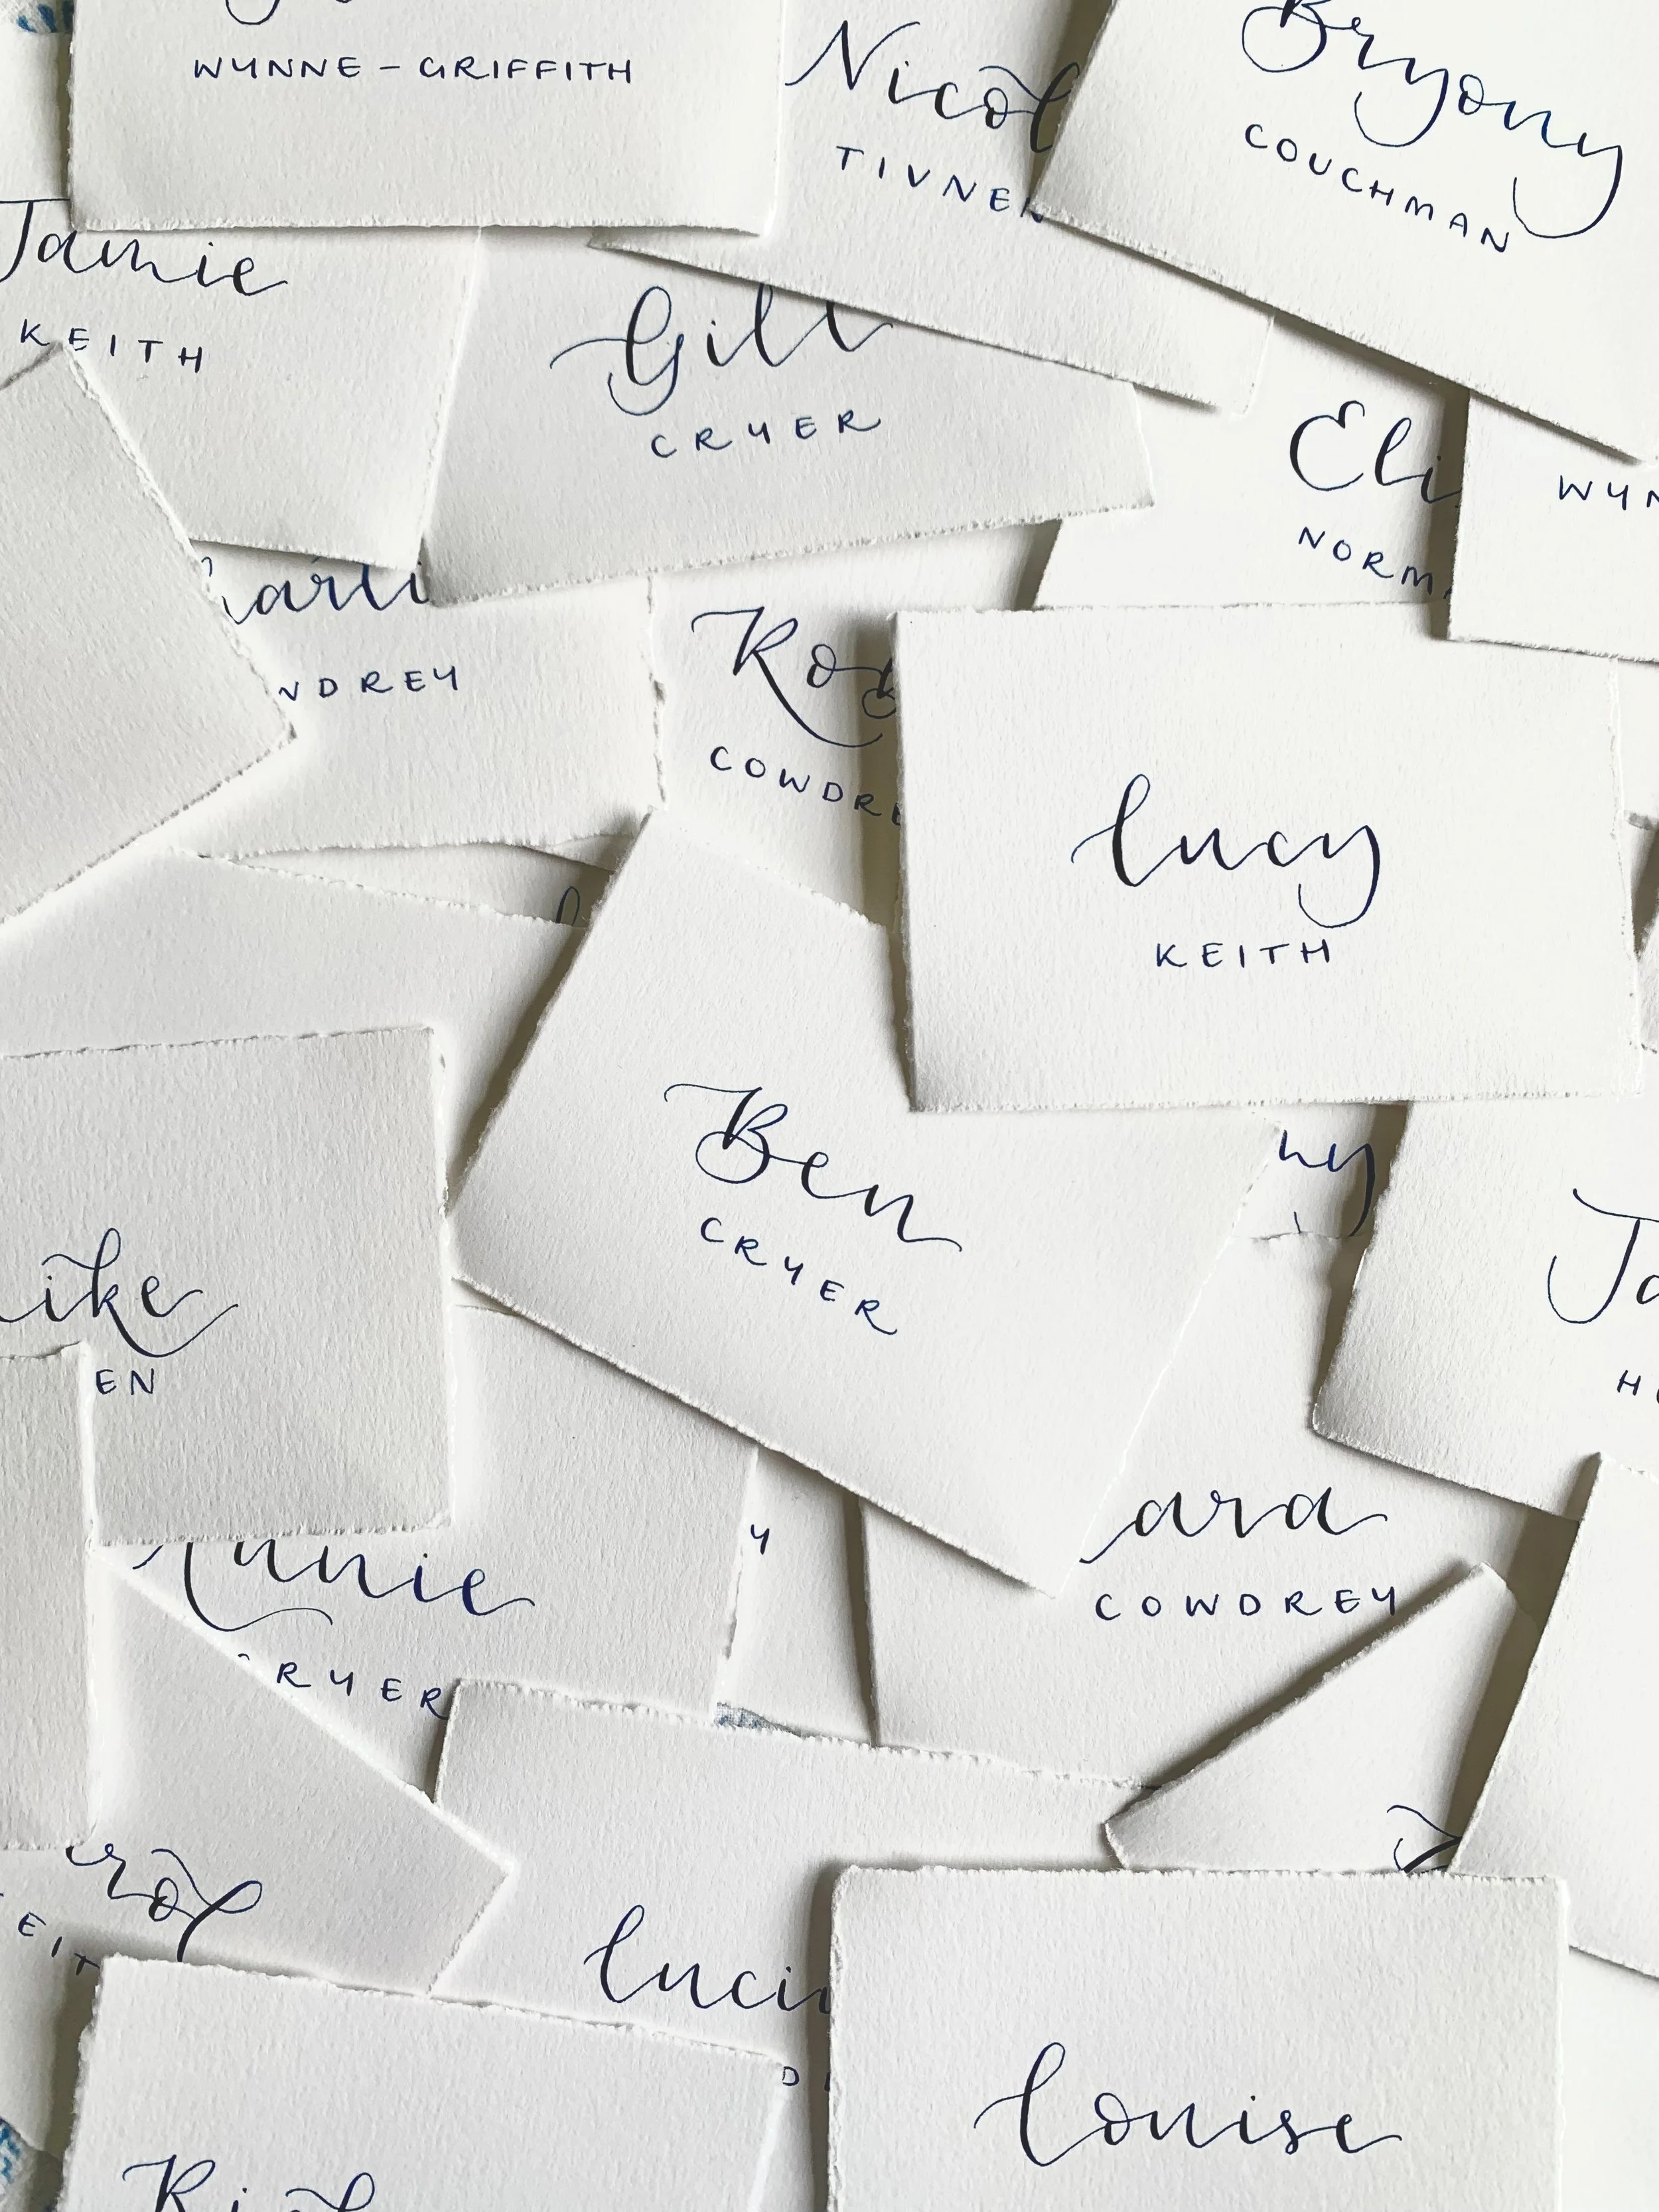 WYNNE-GRIFFITH
Nicol
TIVNE
Bryony
COUCHMAN
Jamie
KEITH
Gill
CRYER
Eli
NORM
WYN
arli
DREY
Ro
COWDRE
lucy
KEITH
Ben
CRYER
ny
Ja
H
ike
EN
ara
COWDREY
Y
nnie
RYER
rol
EIT
luci
D
louise
Ri